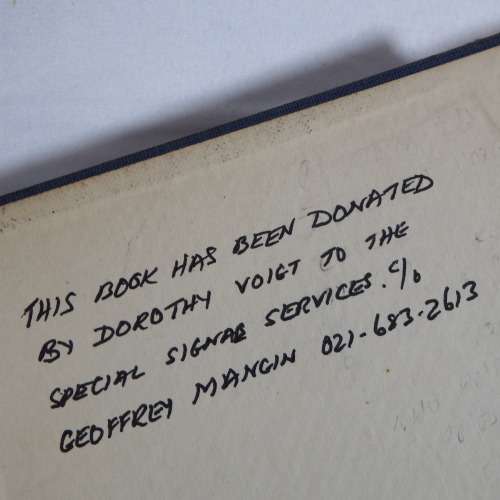 THIS BOOK HAS BEEN DONATED
BY DOROTHY VOIGT TO THE
SPECIAL SIGNAL SERVICES. C/O
GEOFFREY MANGIN 021-683-2613